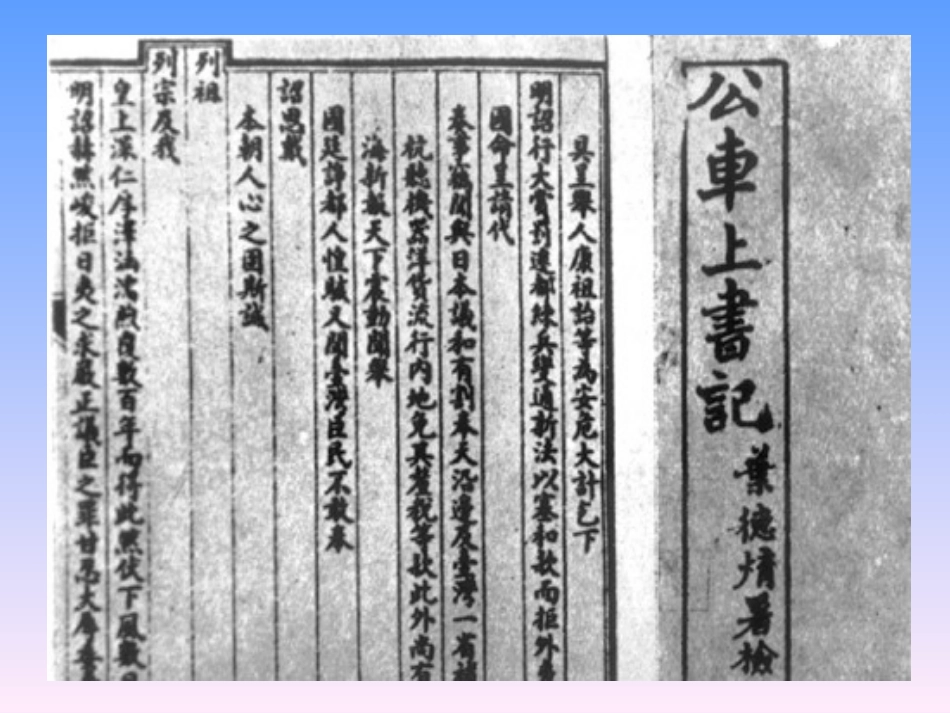 公車上書記
葉德 署檢
具呈舉人康祖詒等為安危大計乞下
明詔行大賞罰遷都練兵變通新法以塞和款而拒外
國命呈請代
奏事竊聞與日本議和有割奉天沿邊及臺灣一省補
杭聽機器洋貨流行內地免其釐稅等款此外尚有
海新報天下震動聞舉
國廷諍都人惶駭又聞臺灣臣民不敢奉
詔思戴
本朝人心之固斯誠
列祖
列宗及我
皇上深仁厚澤涵濡煦育數百年而得此然伏下風數
明詔赫然峻拒日夷之求嚴正議臣之罪甘忍大辱